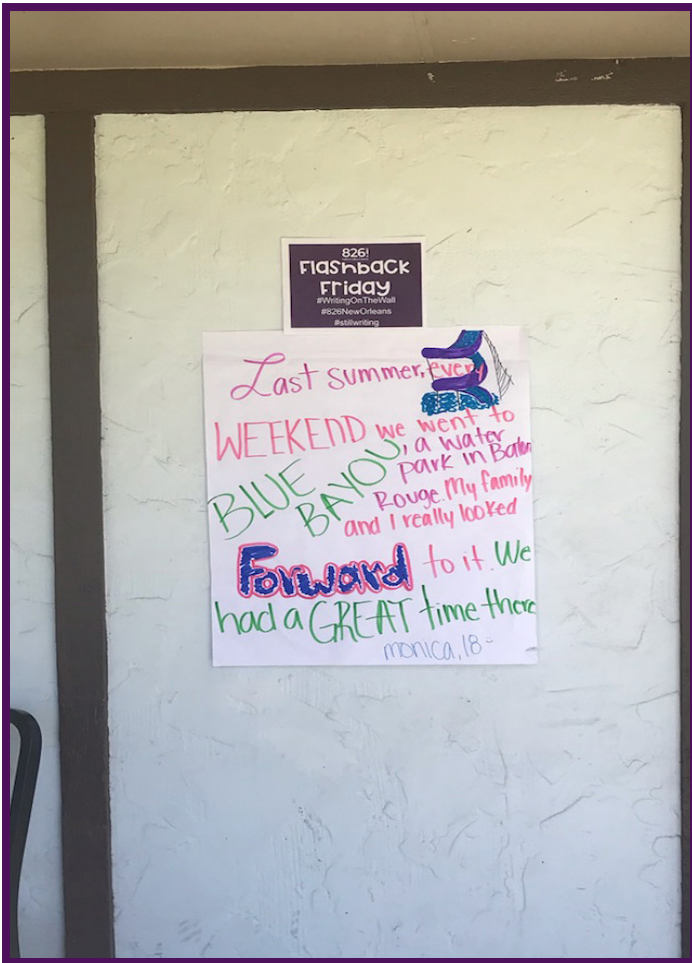 826!
Flashback
Friday
#WritingOnTheWall
#826NewOrleans
#stillwriting
Last summer, every
WEEKEND we went to
BLUE BAYOU, a water
park in Baton
Rouge. My family
and I really looked
Forward to it. We
had a GREAT time there
monica, 18